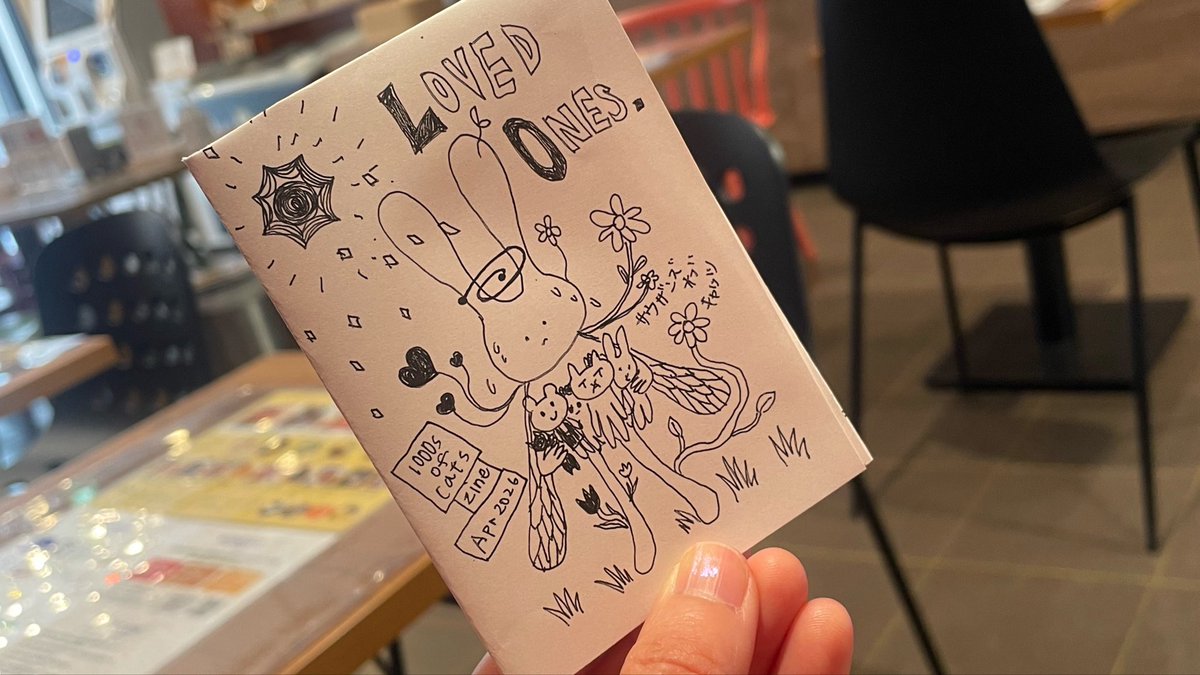 LOVED
ONES.
サウザンズ
オブ
キャッツ
1000s
of
Cats
zine
Apr 2026